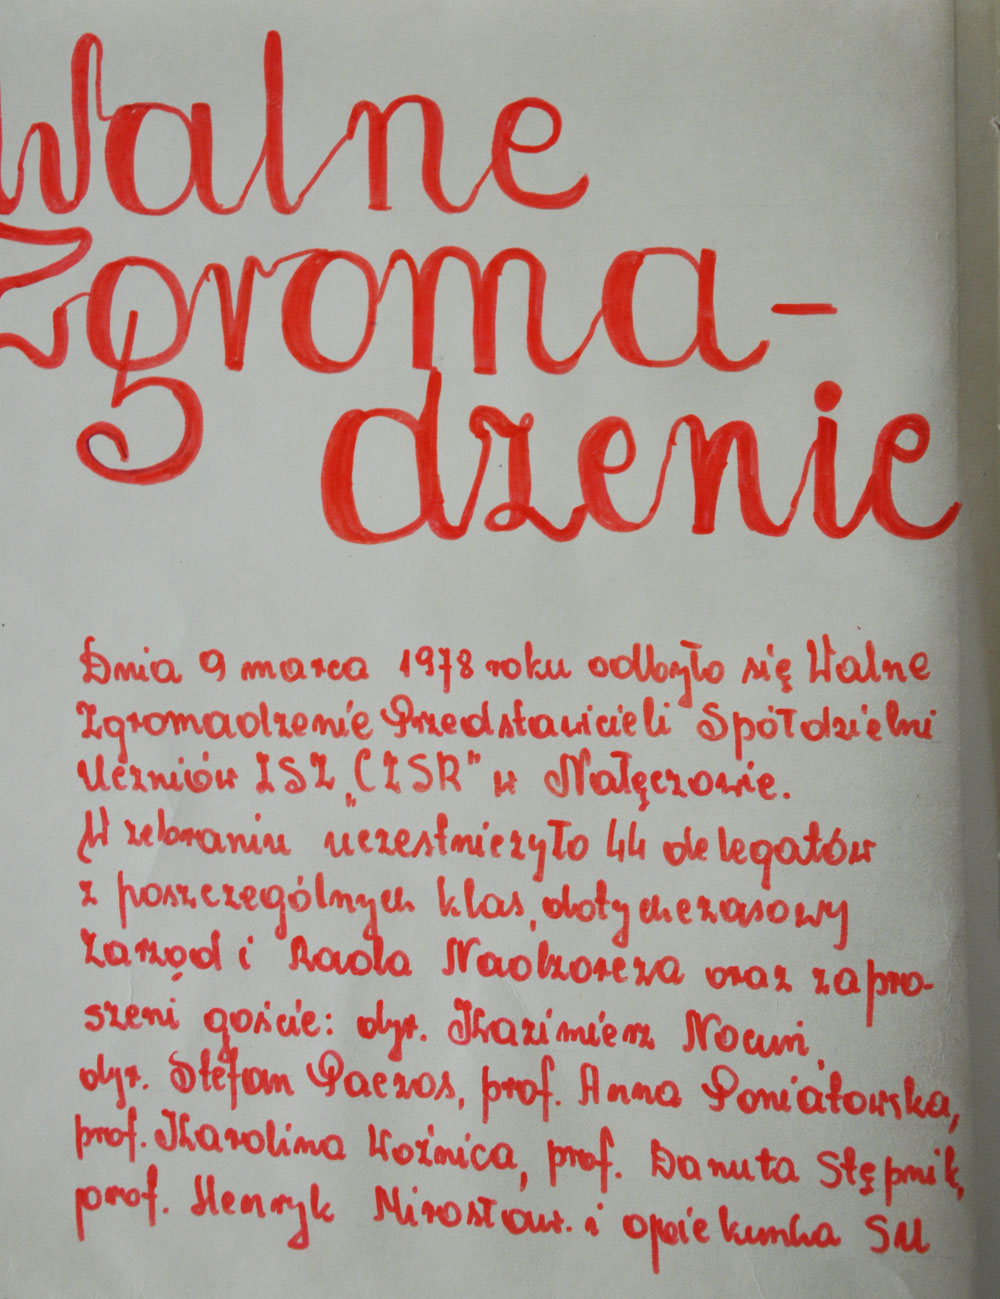 Walne
Zgroma-
dzenie
Dnia 9 marca 1978 roku odbyło się Walne
Zgromadzenie Przedstawicieli Spółdzielni
Uczniów ZSZ „CZSR" w Nałęczowie.
W zebraniu uczestniczyło 44 delegatów
z poszczególnych klas, dotychczasowy
Zarząd i Rada Nadzorcza oraz zapro-
szeni goście: dyr. Kazimierz Nocuń,
dyr. Stefan Paczos, prof. Anna Poniatowska,
prof. Karolina Woźnica, prof. Danuta Stępnik,
prof. Henryk Mirosław. i opiekunka SU